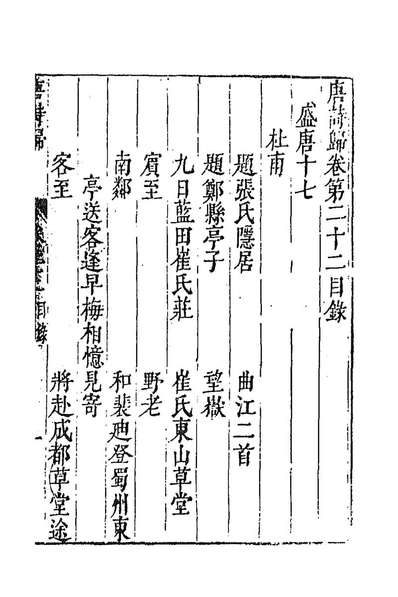 唐詩歸卷第二十二目錄
盛唐十七
杜甫
題張氏隱居　曲江二首
題鄭縣亭子　望嶽
九日藍田崔氏莊　崔氏東山草堂
賓至　野老
南鄰　和裴迪登蜀州東
亭送客逢早梅相憶見寄
客至　將赴成都草堂途
唐詩歸